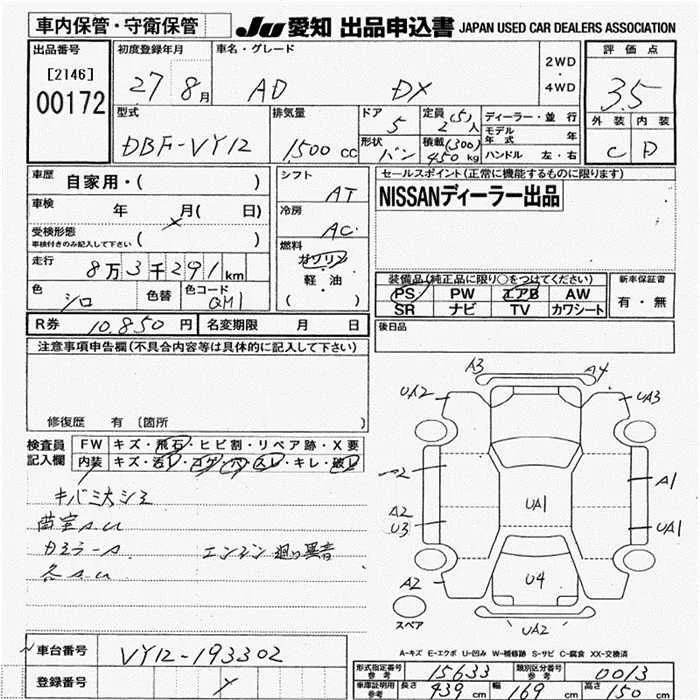 車内保管・守衛保管
JU 愛知 出品申込書 JAPAN USED CAR DEALERS ASSOCIATION
出品番号 [2146] 00172
初度登録年月 27 8月
車名・グレード AD DX
2WD・4WD
評価点 3.5
型式 DBF-VY12
排気量 1500 cc
ドア 5
形状 バン
定員 (5) 2人
積載 (300) 450 kg
ディーラー・並行
モデル年式 年
ハンドル 左・右
外装 C
内装 D
車歴 自家用・( )
車検 年 月( 日)
受検形態 ( )
車検付きのみ記入して下さい
走行 8万3千291km
色 シロ 色替 色コード QM1
R券 10,850円 名変期限 月 日
シフト AT
冷房 AC
燃料 ガソリン 軽・油 ・( )
セールスポイント(正常に機能するものに限ります)
NISSANディーラー出品
装備品(純正品に限り○をつけてください)
PS PW エアB AW
SR ナビ TV カワシート
新車保証書 有・無
後日品
注意事項申告欄(不具合内容等は具体的に記入して下さい)
修復歴 有〔箇所 〕
検査員記入欄
FW キズ・飛石・ヒビ割・リペア跡・X要
内装 キズ・汚レ・コゲ・穴・スレ・キレ・破レ
エンジン廻り異音
A3 A4
UA2 UA3
A1
A2 U3 UA1 UA1
A2 U4
UA2
スペア
A-キズ E-エクボ U-凹み W-補修跡 S-サビ C-腐食 XX-交換済
車台番号 VY12-193302
登録番号
型式指定番号 参考 15633 類別区分番号 参考 0013
車庫証明用 参考 長さ 439 cm 幅 169 cm 高さ 150 cm